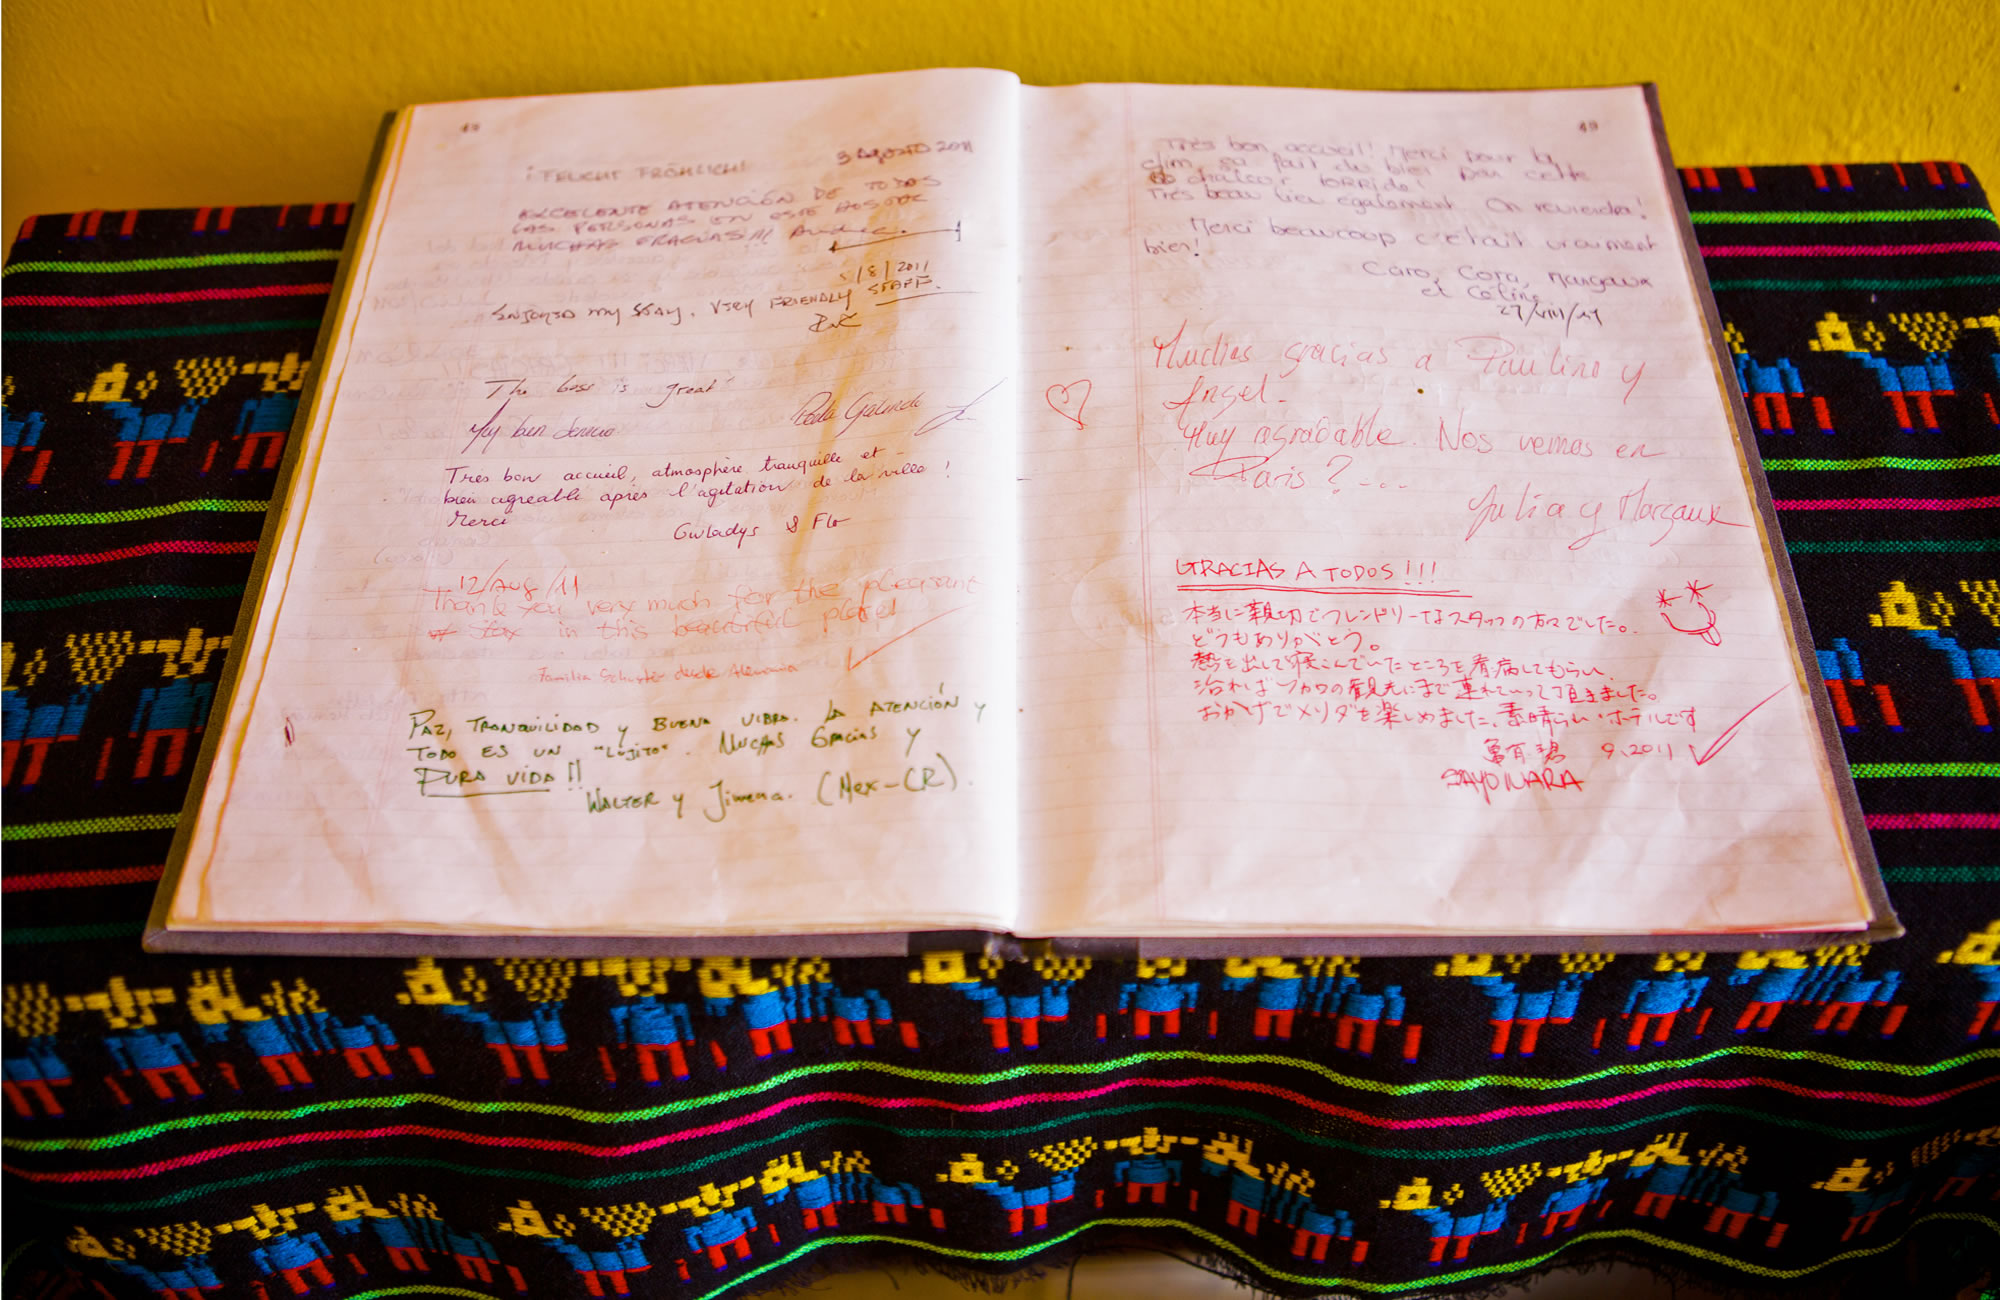 3 AGOSTO 2011
FRÖHLICH!
EXCELENTE ATENCIÓN DE TODOS
LAS PERSONAS EN ESTE HOSTAL
MUCHAS GRACIAS!!!
5/8/2011
ENJOYED MY STAY. VERY FRIENDLY STAFF.
The boss is great!
Muy bien servicio
Très bon accueil, atmosphère tranquille et
bien agréable après l'agitation de la ville !
Merci
Gwladys & Flo
12/Aug/11
Thank you very much for the pleasant
in this beautiful place!
Familia Schuster desde Alemania
PAZ, TRANQUILIDAD Y BUENA VIBRA. LA ATENCIÓN Y
TODO ES UN "LUJITO". MUCHAS GRACIAS Y
PURA VIDA!!
WALTER Y Jimena. (Mex-CR).
49
Très bon accueil! Merci pour la
clim, ça fait du bien par cette
chaleur torride!
Très beau lieu également. On reviendra!
Merci beaucoup c'était vraiment
bien!
Caro, Cora, Margaux
et Céline
27/VIII/11
Muchas gracias a Paulino y
Angel.
Muy agradable. Nos vemos en
Paris?...
Julia y Margaux
GRACIAS A TODOS!!!
本当に親切でフレンドリーなスタッフの方々でした。
どうもありがとう。
熱を出して寝こんでいたところを看病してもらい、
治れば の観光にまで連れていって頂きました。
おかげでメリダを楽しめました。素晴らしいホテルです
9,2011
SAYONARA